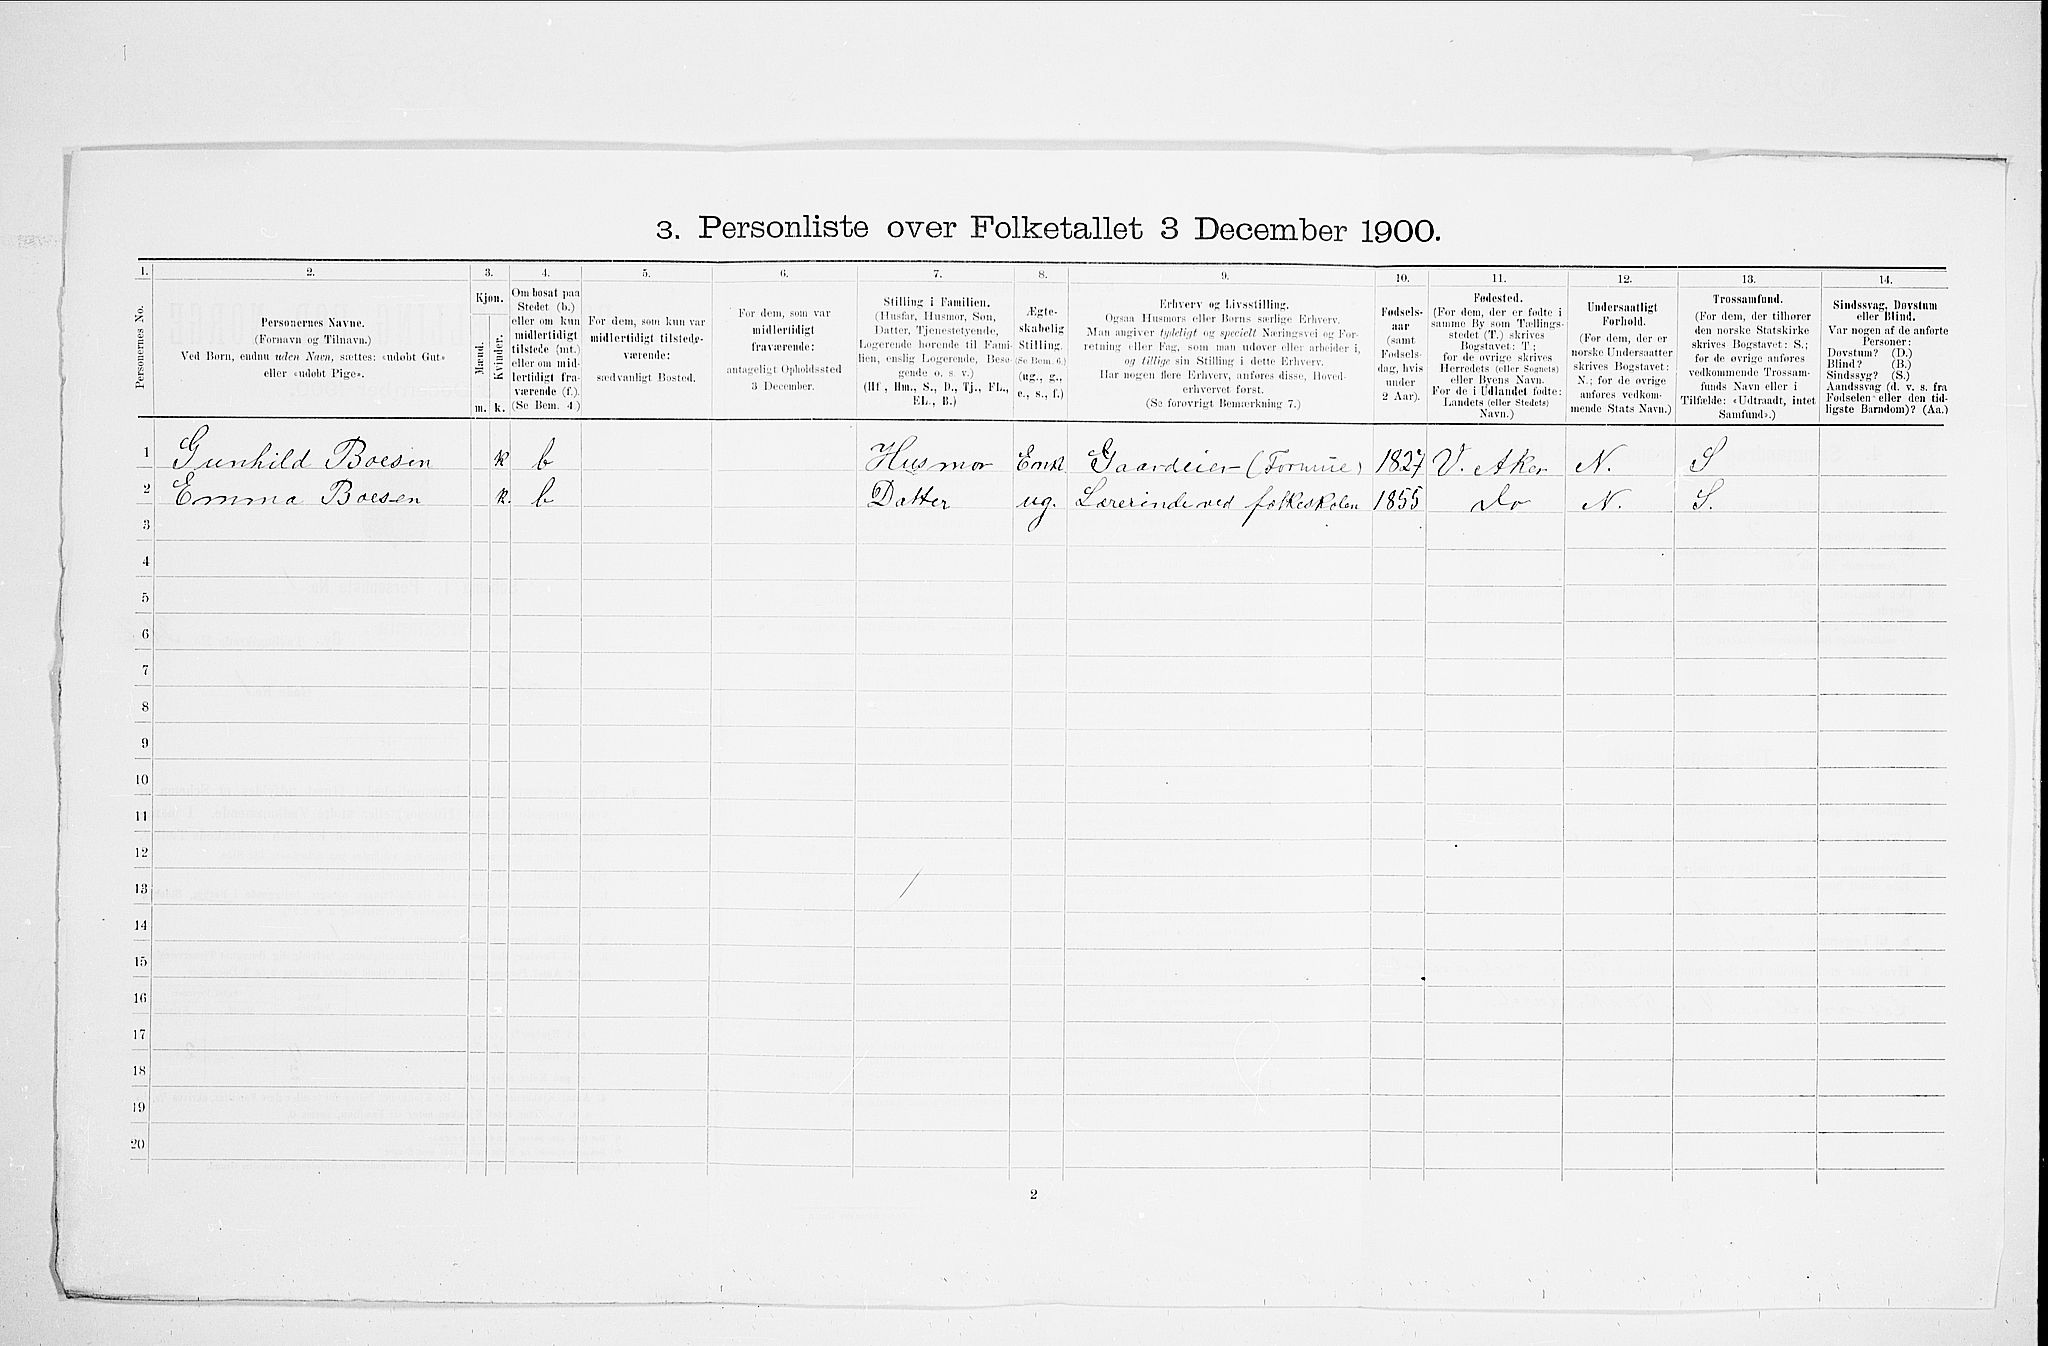 3. Personliste over Folketallet 3 December 1900.
1. 2. 3. 4. 5. 6. 7. 8. 9. 10. 11. 12. 13. 14.
Personernes No.
Personernes Navne.
(Fornavn og Tilnavn.)
Ved Børn, endnu uden Navn, sættes: «udøbt Gut»
eller «udøbt Pige».
Kjøn.
Mænd.
Kvinder.
m. k.
Om bosat paa
Stedet (b.)
eller om kun
midlertidigt
tilstede (mt.)
eller om mid-
lertidigt fra-
værende (f.).
(Se Bem. 4.)
For dem, som kun var
midlertidigt tilstede-
værende:
sædvanligt Bosted.
For dem, som var
midlertidigt
fraværende:
antageligt Opholdssted
3 December.
Stilling i Familien.
(Husfar, Husmor, Søn,
Datter, Tjenestetyende,
Logerende hørende til Fami-
lien, enslig Logerende, Besø-
gende o. s. v.)
(Hf., Hm., S., D., Tj., FL.,
EL., B.)
Ægte-
skabelig
Stilling.
(Se Bem. 6.)
(ug., g.,
e., s., f.)
Erhverv og Livsstilling.
Ogsaa Husmors eller Børns særlige Erhverv.
Man angiver tydeligt og specielt Næringsvei og For-
retning eller Fag, som man udøver eller arbeider i,
og tillige sin Stilling i dette Erhverv.
Har nogen flere Erhverv, anføres disse, Hoved-
erhvervet først.
(Se forøvrigt Bemærkning 7.)
Fødsels-
aar
(samt
Fødsels-
dag, hvis
under
2 Aar).
Fødested.
(For dem, der er fødte i
samme By som Tællings-
stedet (T.) skrives
Bogstavet: T.;
for de øvrige skrives
Herredets (eller Sognets)
eller Byens Navn.
For de i Udlandet fødte:
Landets (eller Stedets)
Navn.)
Undersaatligt
Forhold.
(For dem, der er
norske Undersaatter
skrives Bogstavet:
N.; for de øvrige
anføres vedkom-
mende Stats Navn.)
Trossamfund.
(For dem, der tilhører
den norske Statskirke
skrives Bogstavet: S.;
for de øvrige anføres
vedkommende Trossam-
funds Navn eller i
Tilfælde: «Udtraadt, intet
Samfund».)
Sindssvag, Døvstum
eller Blind.
Var nogen af de anførte
Personer:
Døvstum? (D.)
Blind? (B.)
Sindssyg? (S.)
Aandssvag (d. v. s. fra
Fødselen eller den tid-
ligste Barndom)? (Aa.)
1 Gunhild Boesen k b Husmor Enk. Gaardeier (Formue) 1827 V. Aker N. S
2 Emma Boesen k. b Datter ug. Lærerinde ved folkeskolen 1855 do N. S.
3
4
5
6
7
8
9
10
11
12
13
14
15
16
17
18
19
20
2